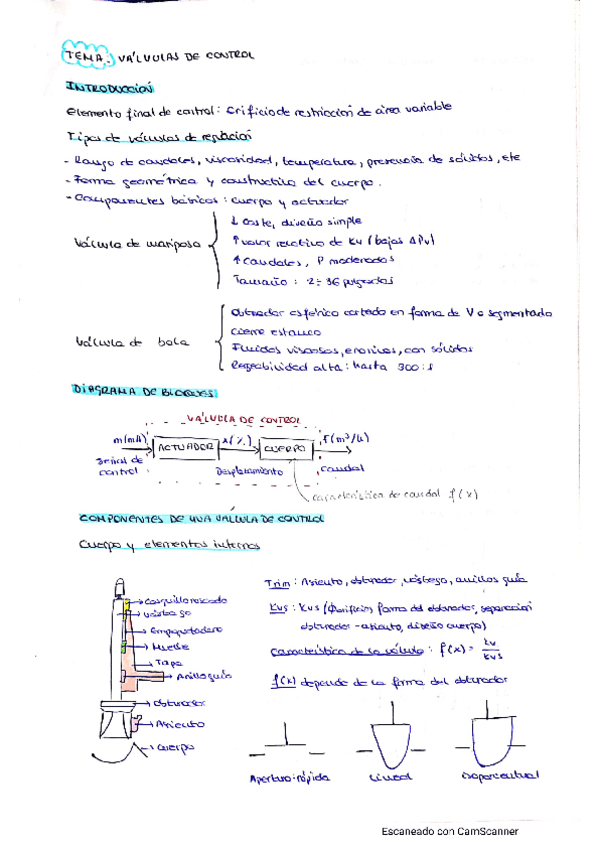 TEMA: VÁLVULAS DE CONTROL
INTRODUCCION
Elemento final de control: Orificio de restriccion de area variable
Tipos de válvulas de regulacion
- Rango de caudales, viscosidad, temperatura, presencia de sólidos, etc
- Forma geométrica y constructiva del cuerpo.
- Componentes básicos: cuerpo y actuador
Válvula de mariposa
↓ Coste, diseño simple
↑ valor relativo de Kv (bajas ΔPv)
↑ caudales, P moderados
Tamaño: 2 ÷ 36 pulgadas
Válvula de bola
Obturador esférico cortado en forma de V o segmentado
Cierre estanco
Fluidos viscosos, erosivos, con sólidos
Rangeabilidad alta: hasta 300:1
DIAGRAMA DE BLOQUES
VÁLVULA DE CONTROL
m(mA) ACTUADOR x(%) CUERPO f(m³/h)
señal de control
Desplazamiento
caudal
característica de caudal f(x)
COMPONENTES DE UNA VALVULA DE CONTROL
Cuerpo y elementos internos
Casquillo roscado
Vástago
Empaquetadura
Muelle
Tapa
Anillo guía
Obturador
Asiento
Cuerpo
Trim: Asiento, obturador, vástago, anillos guía
Kvs: Kvs (Øorificio, forma del obturador, separacion
obturador-asiento, diseño cuerpo)
Característica de la válvula: f(x) = Kv/Kvs
f(x) depende de la forma del obturador
Apertura rápida
Lineal
Isoporcentual
Escaneado con CamScanner